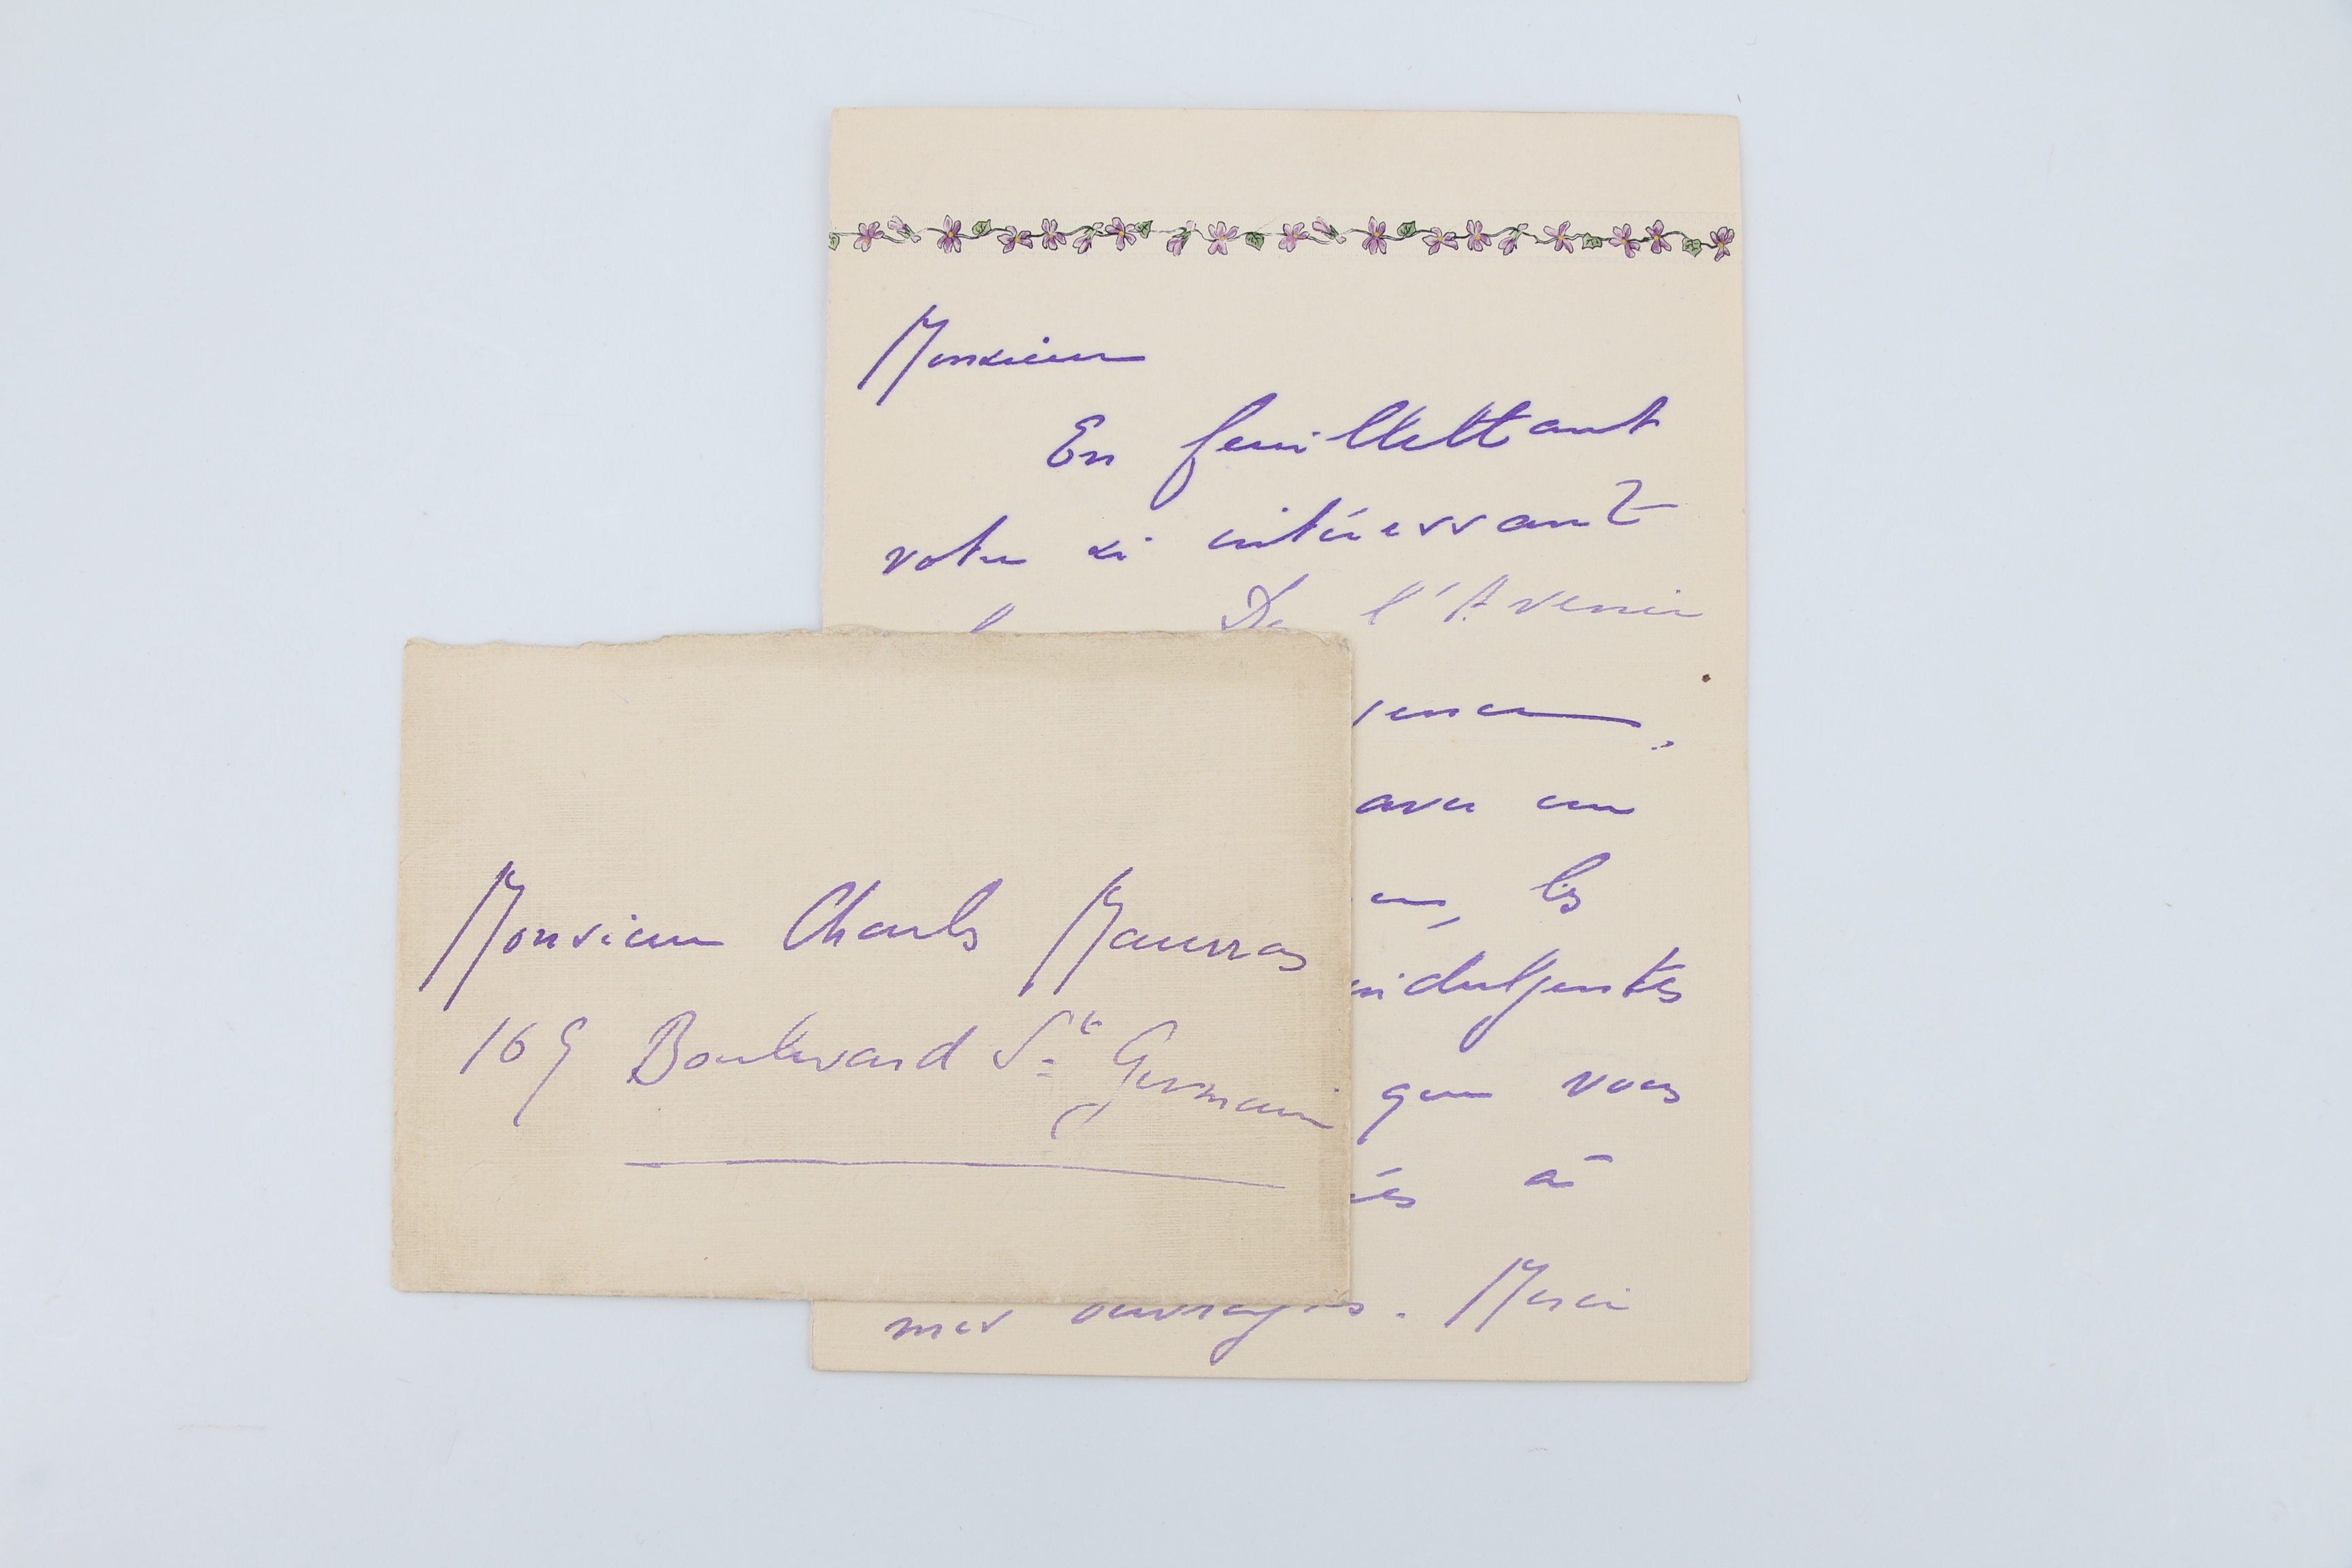 Monsieur
En feuillettant
votre si intéressant
De l'Avenir
avec un
les
indulgentes
que vous
à
mes ouvrages. Merci
Monsieur Charles Maurras
169 Boulevard St Germain